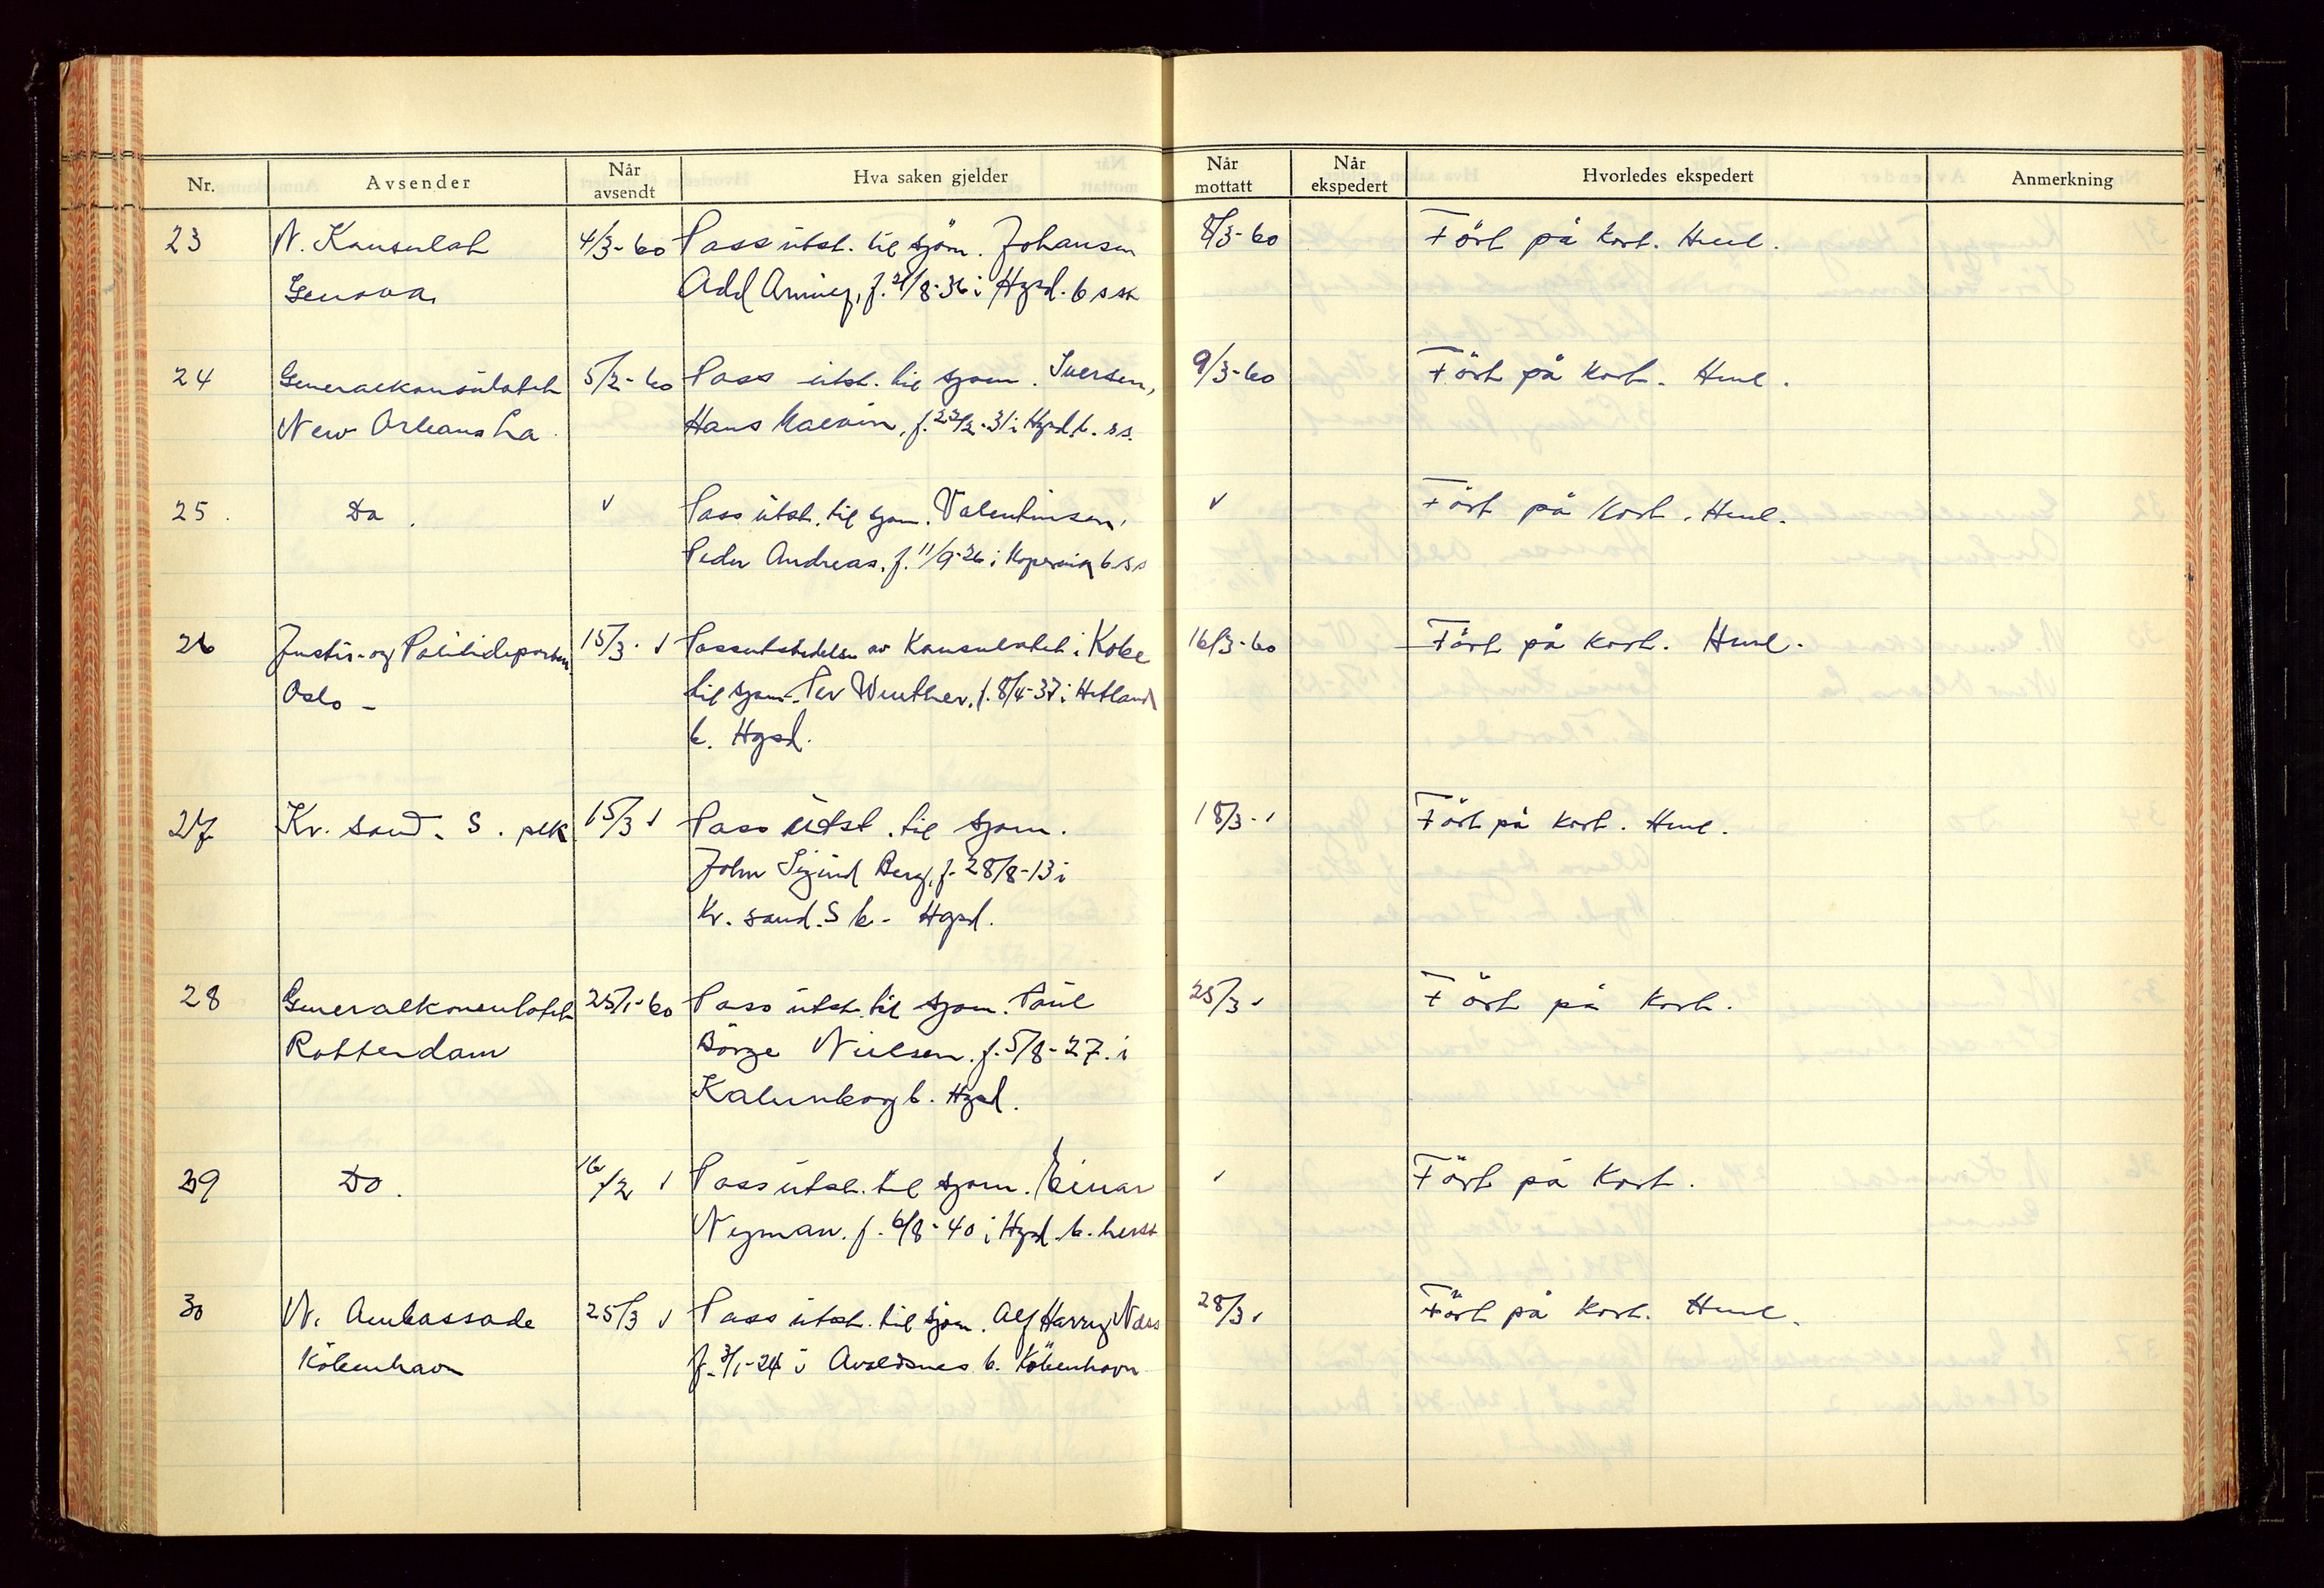 Nr.
Avsender
Når avsendt
Hva saken gjelder
Når mottatt
Når ekspedert
Hvorledes ekspedert
Anmerkning
23 N. Konsulat 4/3-60 Pass utst. til sjøm. Johansen 8/3-60 Ført på kort. Hml.
Genova, Odd Arning, f. 21/8-36 i Hgsd. b ss
24 Generalkonsulatet 5/2-60 Pass utst. til sjøm. Iversen, 9/3-60 Ført på kort. Hml.
New Orleans La. Hans f. 23/2-31 i Hgsd. b. ss.
25. Do. √ Pass utst. til sjøm. Valentinsen, √ Ført på kort. Hml.
Peder Andreas, f. 11/9-26 i Kopervik b. ss
26 Justis- og Politideparten 15/3- √ Passutstedelse av Konsulatet i Kobe 16/3-60 Ført på kort. Hml.
Oslo - til sjøm. Per Winther, f. 8/4-37 i Hetland
b. Hgsd.
27 Kr. sand. S. plk 15/3 √ Pass utst. til sjøm. 18/3- √ Ført på kort. Hml.
John Sigurd Berg, f. 28/8-13 i
Kr. sand. S b. Hgsd.
28 Generalkonsulatet 25/1-60 Pass utst. til sjøm. Paul 25/3 √ Ført på kort.
Rotterdam Börge Nielsen. f. 5/8-27. i
Kalunborg b. Hgsd.
29 Do. 16/2 √ Pass utst. til sjøm. Einar √ Ført på kort.
Nyman. f. 6/8-40 i Hgsd. b. herst
30 N. Ambassade 25/3 √ Pass utst. til sjøm. Alf Harry Næss 28/3 √ Ført på kort. Hml.
Köbenhavn f. 3/1-24 i Avaldsnes b. Köbenhavn